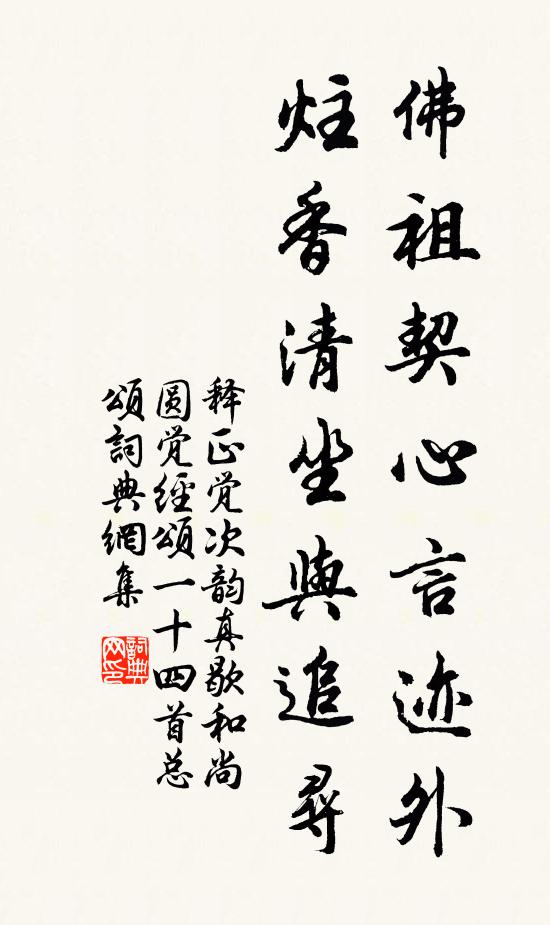 佛祖契心言迹外
炷香清坐與追尋
释正觉次韵真歇和尚
圆觉經頌一十四首总
頌詞典網集
詞典网印